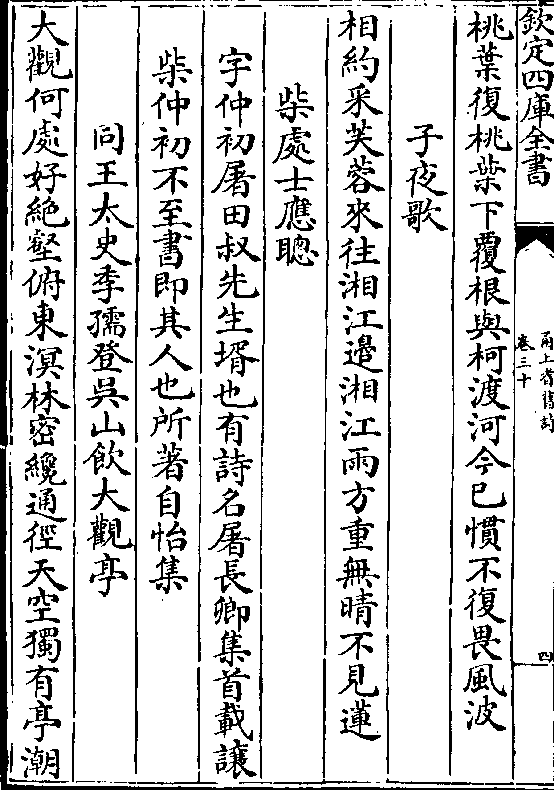 欽定四庫全書
甬上耆舊詩
卷三十
四
桃葉復桃葉下覆根與柯渡河今已慣不復畏風波
子夜歌
相約采芙蓉來往湘江邉湘江雨方重無晴不見蓮
柴處士應聰
字仲初屠田叔先生壻也有詩名屠長卿集首載讓
柴仲初不至書即其人也所著自怡集
同王太史季孺登吳山飲大觀亭
大觀何處好絶壑俯東溟林密纔通徑天空獨有亭潮